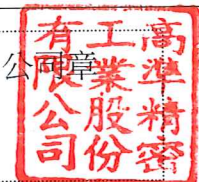 公司章
高準精密
工業股份
有限公司